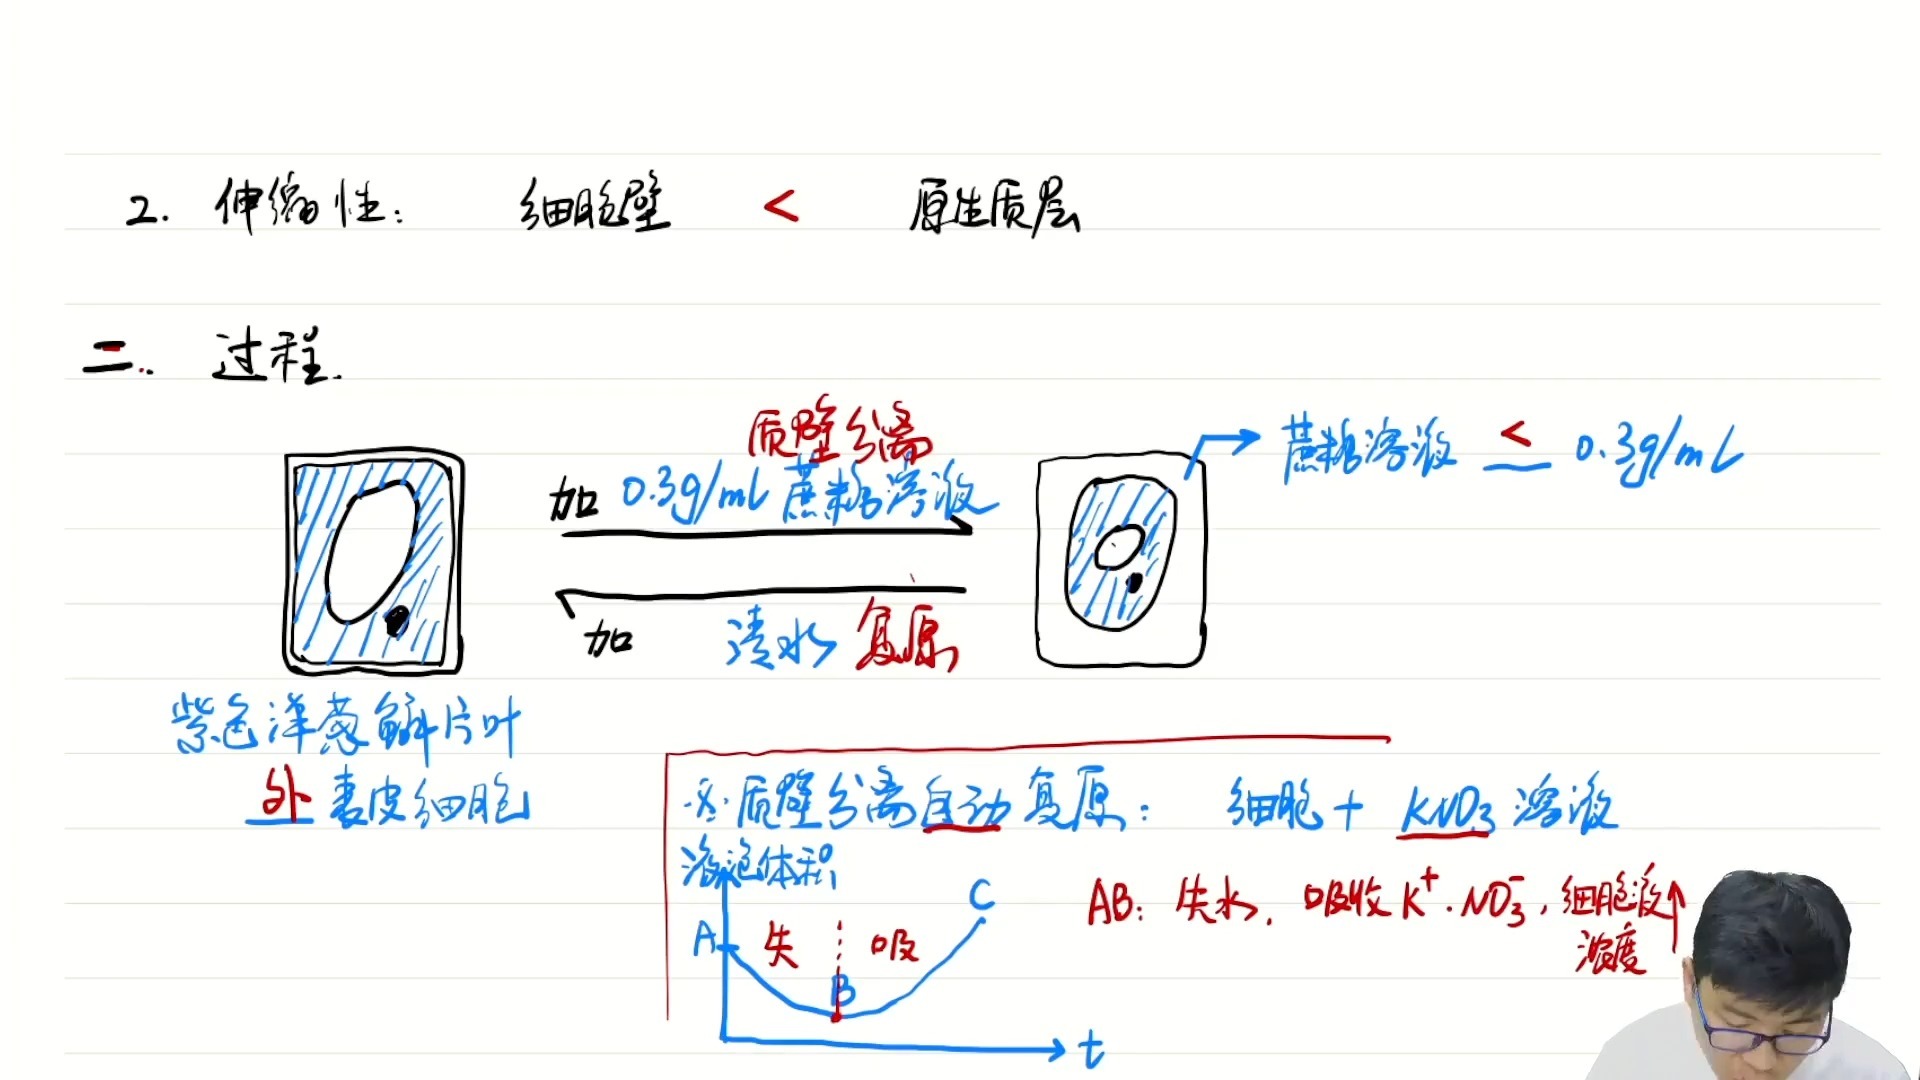 2. 伸缩性: 细胞壁 < 原生质层
二. 过程.
质壁分离
加 0.3g/mL 蔗糖溶液
蔗糖溶液 ≤ 0.3g/mL
加 清水 复原
紫色洋葱鳞片叶
外表皮细胞
※.质壁分离自动复原: 细胞 + KNO₃ 溶液
液泡体积
A
失
吸
B
C
t
AB: 失水. 吸收K⁺.NO₃⁻, 细胞液↑
浓度